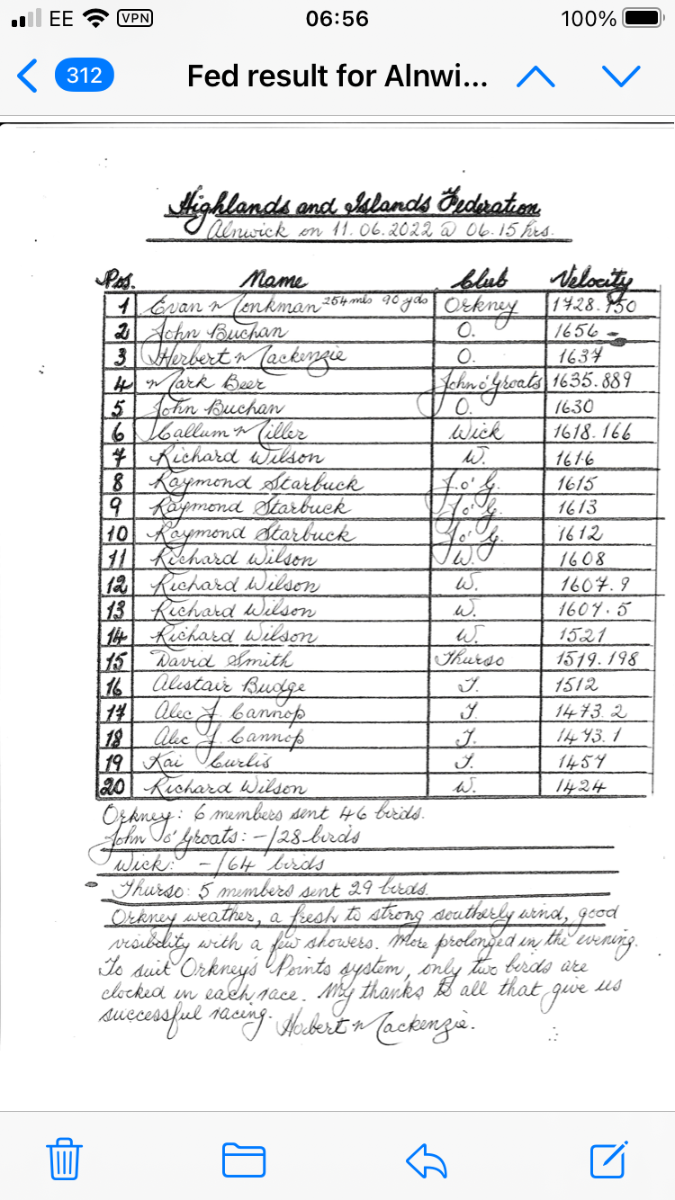 EE VPN 06:56 100%
312 Fed result for Alnwi...
Highlands and Islands Federation
Alnwick on 11.06.2022 @ 06.15 hrs.
Pos. Name Club Velocity
1 Evan Monkman 254 mls 90 yds Orkney 1728.750
2 John Buchan O. 1656 -
3 Herbert Mackenzie O. 1637
4 Mark Beer John o' Groats 1635.889
5 John Buchan O. 1630
6 Callum Miller Wick 1618.166
7 Richard Wilson W. 1616
8 Raymond Starbuck J.o' G. 1615
9 Raymond Starbuck J.o' G. 1613
10 Raymond Starbuck J.o' G. 1612
11 Richard Wilson W. 1608
12 Richard Wilson W. 1607.9
13 Richard Wilson W. 1607.5
14 Richard Wilson W. 1521
15 David Smith Thurso 1519.198
16 Alistair Budge T. 1512
17 Alec J Cannop T. 1473.2
18 Alec J Cannop T. 1473.1
19 Kai Curlis T. 1457
20 Richard Wilson W. 1424
Orkney: 6 members sent 46 birds.
John o' Groats: -/28 birds
Wick: -/64 birds
Thurso: 5 members sent 29 birds.
Orkney weather, a fresh to strong southerly wind, good
visibility with a few showers. More prolonged in the evening.
To suit Orkney's Points system, only two birds are
clocked in each race. My thanks to all that give us
successful racing. Herbert Mackenzie.